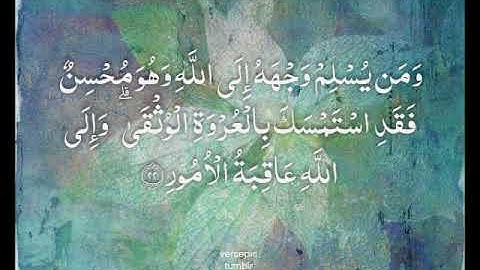 وَمَن يُسْلِمْ وَجْهَهُ إِلَى اللَّهِ وَهُوَ مُحْسِنٌ
فَقَدِ اسْتَمْسَكَ بِالْعُرْوَةِ الْوُثْقَىٰ ۗ وَإِلَى
اللَّهِ عَاقِبَةُ الْأُمُورِ ﴿٢٢﴾
versepic
tumblr